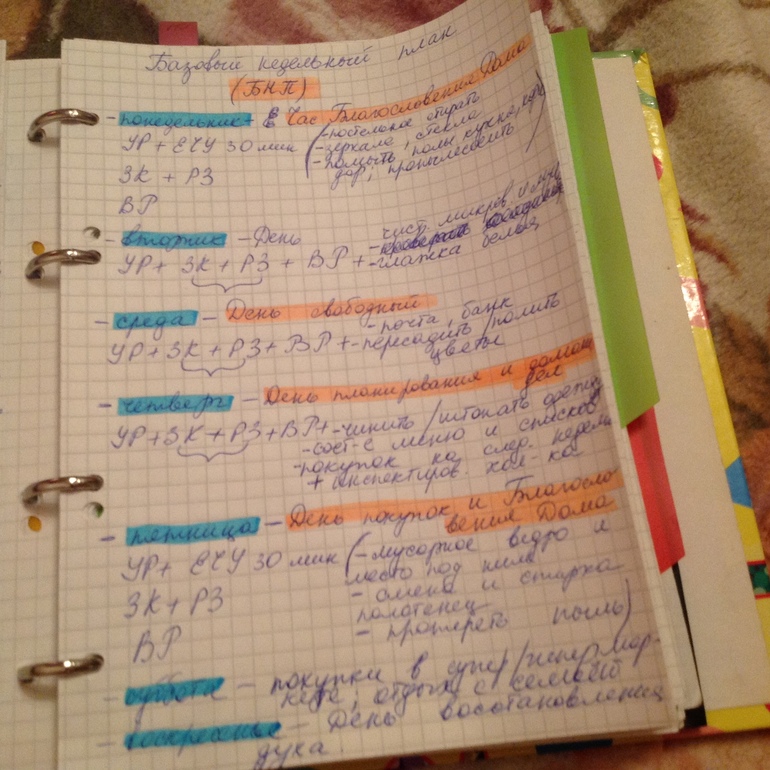 Базовый недельный план
(БНП)
- понедельник - Час Благословения Дома
УР + ЕЧУ 30 мин (- постельное стирать
- зеркала, стекла
ЗК + РЗ - помыть полы кухня, кори
дор, пропылесосить)
ВР
- вторник - День - чист. микров. и
УР + ЗК + РЗ + ВР + - глажка белья
- среда - День свободный
УР + ЗК + РЗ + ВР + - почта, банк
- пересадить / полить
цветы
- четверг - День планирования и домаш
дел
УР + ЗК + РЗ + ВР + - чинить / штопать одежду
- сост-е меню и списков
- покупок на след. неделю
+ инспектиров. хол-ка
- пятница - День покупок и Благосло
вения Дома
УР + ЕЧУ 30 мин (- мусорное ведро и
место под ним
ЗК + РЗ - смена и стирка
полотенец
ВР - протереть пыль)
- суббота - покупки в супер/гипермар-
кете, отдых с семьёй
- воскресенье - День восстановления
духа.